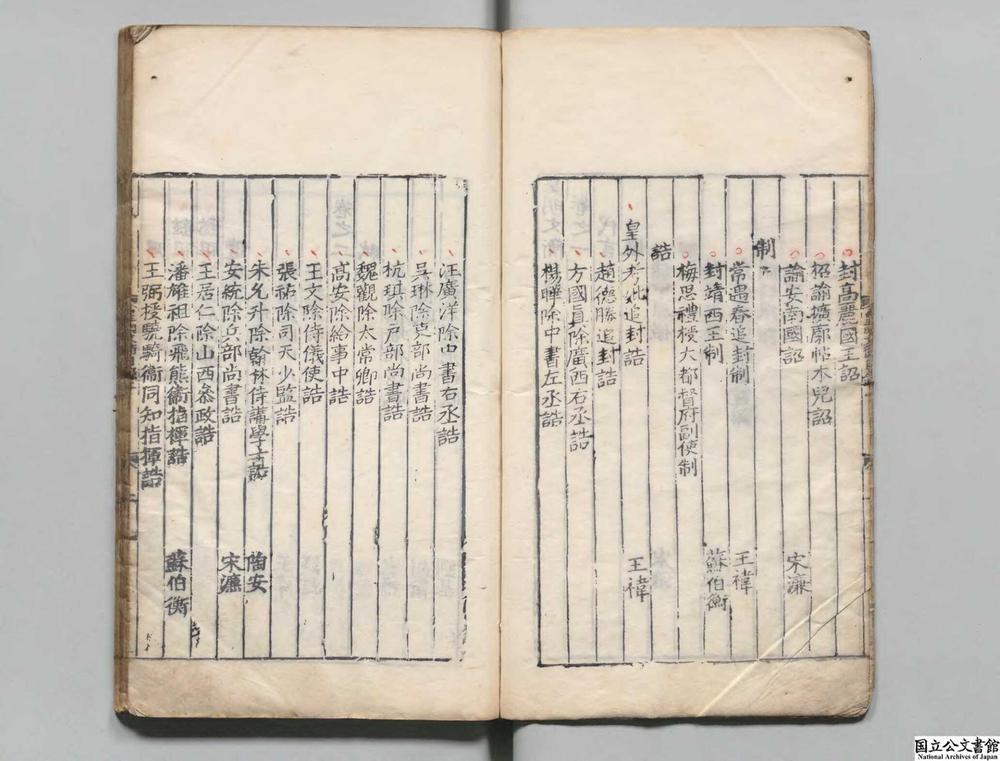 封高麗國王詔
招諭擴廓帖木兒詔
諭安南國詔 宋濂
制
常遇春追封制 王禕
封靖西王制 蘇伯衡
梅思禮授大都督府副使制
誥
皇外考妣追封誥 王禕
趙德勝追封誥
方國眞除廣西右丞誥
楊曄除中書左丞誥
汪廣洋除中書右丞誥
吳琳除吏部尚書誥
杭琪除戶部尚書誥
魏觀除太常卿誥
高安除給事中誥
王文除侍儀使誥
張祐除司天少監誥
朱允升除翰林侍講學士誥 陶安
安統除兵部尚書誥 宋濂
王居仁除山西參政誥
潘雄祖除飛熊衛指揮誥 蘇伯衡
王弼授驍騎衛同知指揮誥
国立公文書館
National Archives of Japan